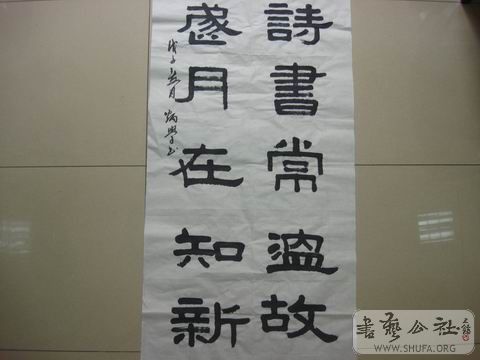 詩書常溫故
歲月在知新
戊子 月 炳學书
書藝公社
WWW.SHUFA.ORG